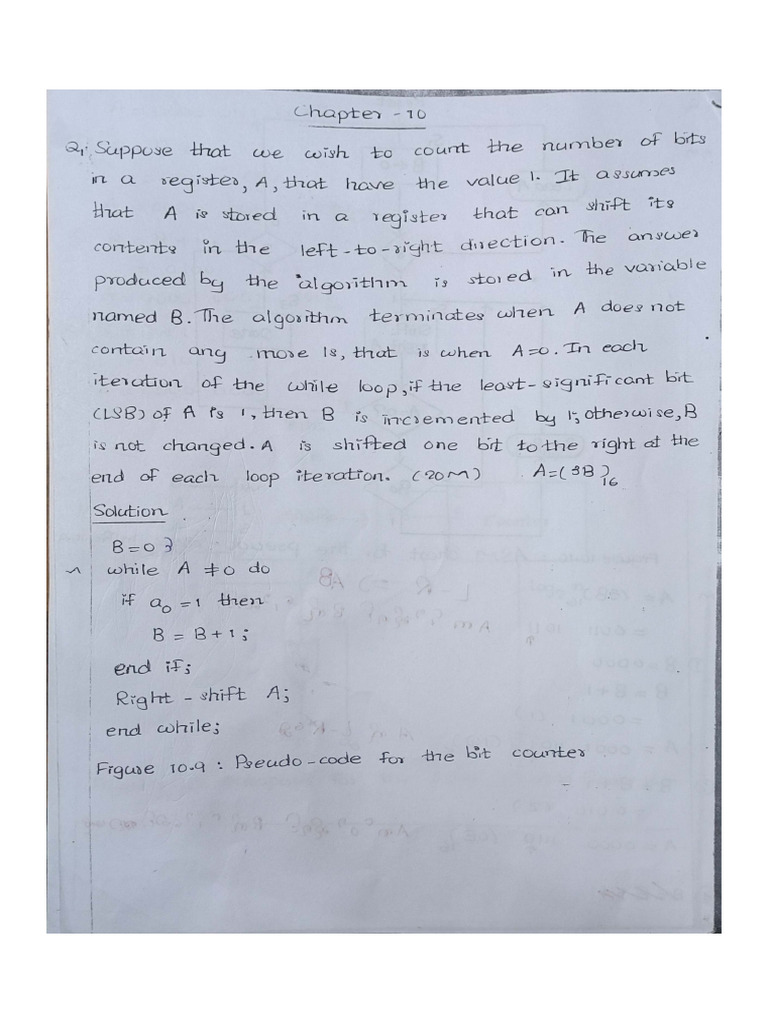 Chapter - 10
Q1: Suppose that we wish to count the number of bits
in a register, A, that have the value 1. It assumes
that A is stored in a register that can shift its
contents in the left-to-right direction. The answer
produced by the algorithm is stored in the variable
named B. The algorithm terminates when A does not
contain any more 1s, that is when A=0. In each
iteration of the while loop, if the least-significant bit
(LSB) of A is 1, then B is incremented by 1; otherwise, B
is not changed. A is shifted one bit to the right at the
end of each loop iteration. (20M) A=(3B)16
Solution
B=0;
while A ≠ 0 do
if a0 = 1 then
B = B+1;
end if;
Right-shift A;
end while;
Figure 10.9: Pseudo-code for the bit counter